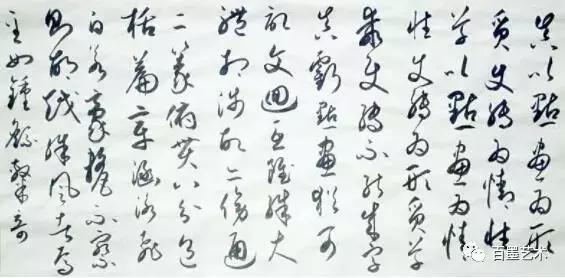 真以點畫為形
質使轉為情性
草以點畫為情
性使轉為形質草
乖使轉不能成字
真虧點畫猶可
記文迴互雖殊大
體相涉故亦傍通
二篆俯貫八分包
括篇章涵泳飛
白若毫釐不察
則胡越殊風者焉
至如鍾繇隸奇
百墨艺术